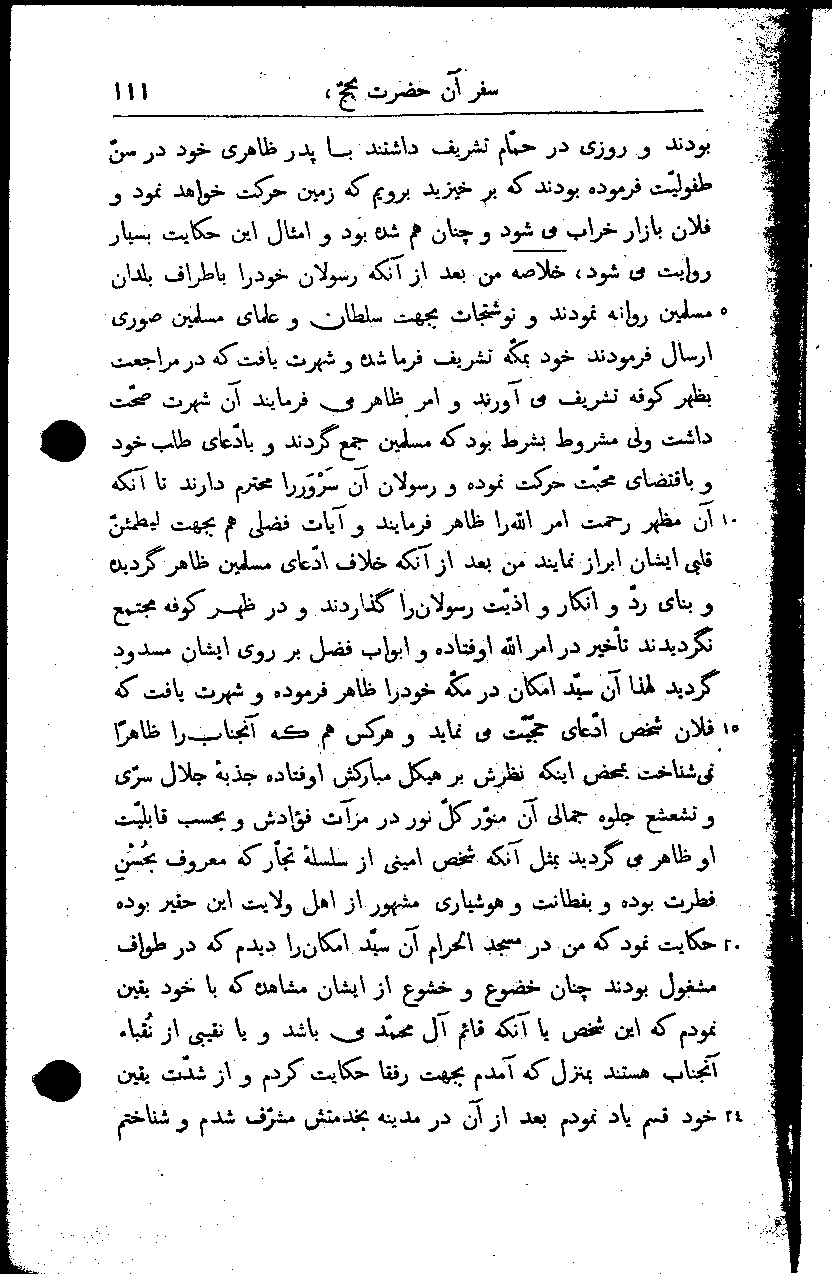 سفر آن حضرت بحجّ، ۱۱۱
بودند و روزی در حمّام تشریف داشتند بـا پدر ظاهری خود در سنّ
طفولیّت فرموده بودند که بر خیزید برویم که زمین حرکت خواهد نمود و
فلان بازار خراب می شود و چنان هم شده بود و امثال این حکایت بسیار
روایت می شود، خلاصه من بعد از آنکه رسولان خودرا باطراف بلدان
۵ مسلمین روانه نمودند و نوشتجات بجهت سلطان و علمای مسلمین صوری
ارسال فرمودند خود بمکّه تشریف فرما شده و شهرت یافت که در مراجعت
بظهر کوفه تشریف می آورند و امر ظاهر می فرمایند آن شهرت صحّت
داشت ولی مشروط بشرط بود که مسلمین جمع گردند و بادّعای طلب خود
و باقتضای محبّت حرکت نموده و رسولان آن سَرْوَررا محترم دارند تا آنکه
۱۰ آن مظهر رحمت امر الله‌را ظاهر فرمایند و آیات فضلی هم بجهت لیطمئنّ
قلبی ایشان ابراز نمایند من بعد از آنکه خلاف ادّعای مسلمین ظاهر گردیده
و بنای ردّ و انکار و اذیّت رسولان‌را گذاردند و در ظهـر کوفه مجتمع
نگردیدند تأخیر در امر الله اوفتاده و ابواب فضل بر روی ایشان مسدود
گردید لهذا آن سیّد امکان در مکّه خودرا ظاهر فرموده و شهرت یافت که
۱۵ فلان شخص ادّعای حجّیّت می نماید و هرکس هم کـه آنجناب‌را ظاهرًا
نمی‌شناخت بمحض اینکه نظرش بر هیکل مبارکش اوفتاده جذبهٔ جلال سرّی
و تشعشع جلوه جمالی آن منوّر کلّ نور در مرآت فؤادش و بحسب قابلیّت
او ظاهر می گردید بمثل آنکه شخص امینی از سلسلهٔ تجّار که معروف بحُسْنِ
فطرت بوده و بفطانت و هوشیاری مشهور از اهل ولایت این حقیر بوده
۲۰ حکایت نمود که من در مسجد الحرام آن سیّد امکان‌را دیدم که در طواف
مشغول بودند چنان خضوع و خشوع از ایشان مشاهده که با خود یقین
نمودم که این شخص یا آنکه قائم آل محمّد می باشد و یا نقیبی از نُقباء
آنجناب هستند بمنزل که آمدم بجهت رفقا حکایت کردم و از شدّت یقین
۲۴ خود قسم یاد نمودم بعد از آن در مدینه بخدمتش مشرّف شدم و شناختم